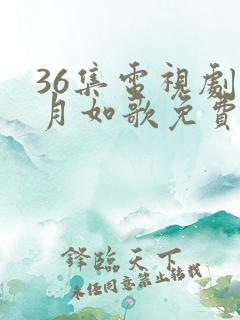 36集電視劇
月如歌免費
鋒臨天下
未經同意禁止轉載